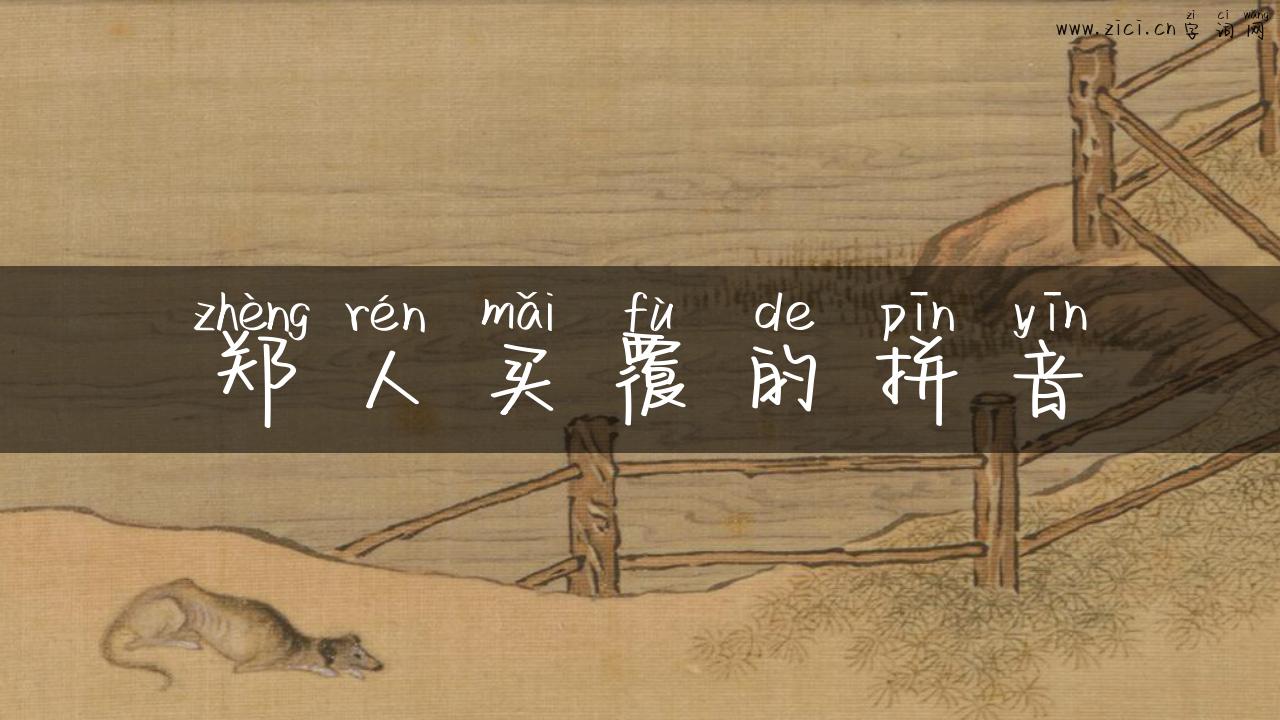 zì cí wǎng
www.zici.cn 字词网
zhèng rén mǎi fù de pīn yīn
郑人买覆的拼音